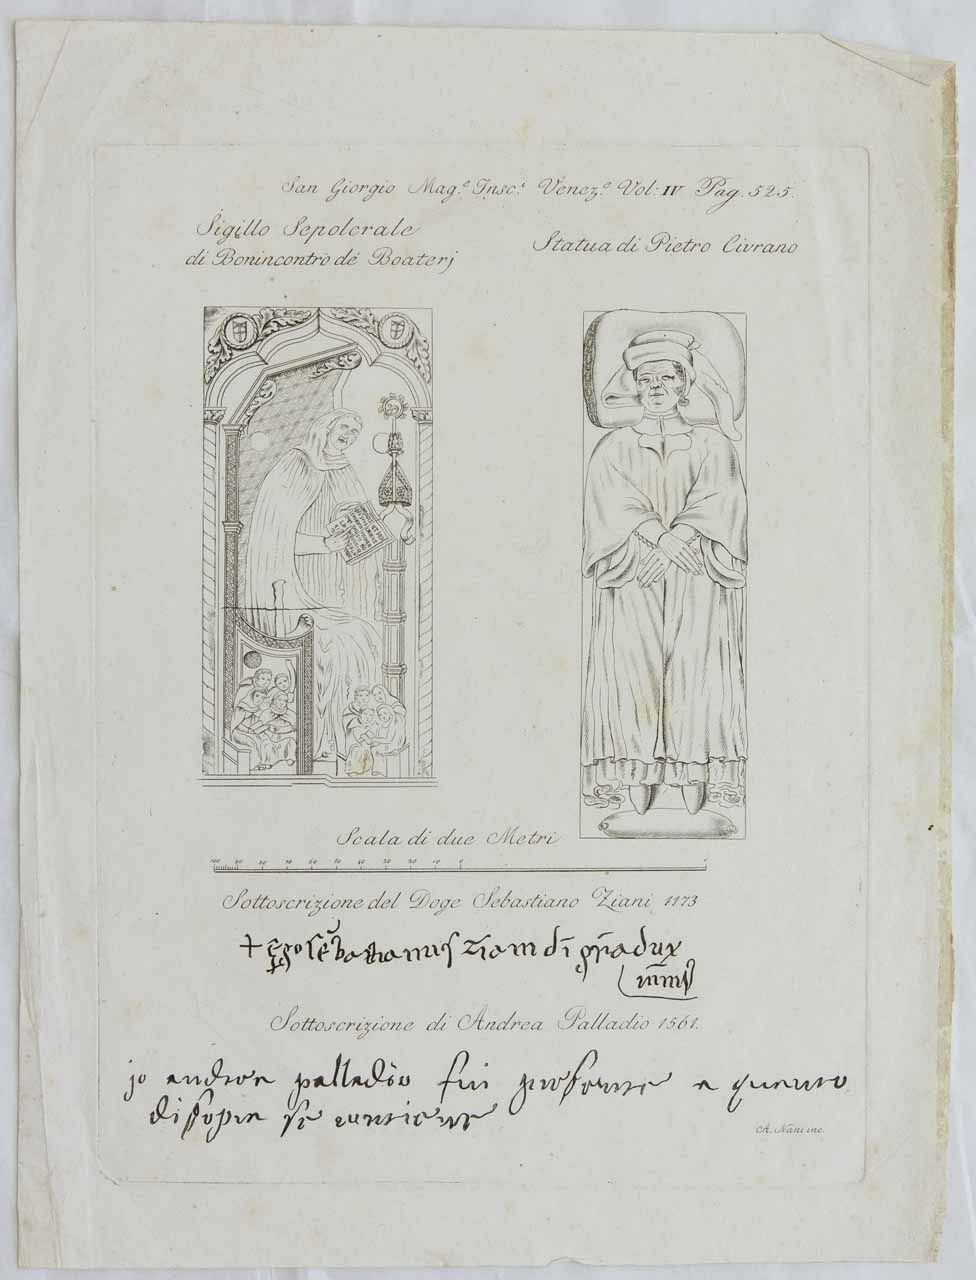 San Giorgio Mag.e Insc.i Venez.e Vol: IV Pag. 525.
Sigillo Sepolcrale
di Bonincontro dé Boaterj
Statua di Pietro Civrano
Scala di due Metri
Sottoscrizione del Doge Sebastiano Ziani 1173
+ Ego Sebastianus Ziani dī gr̄a dux
Sottoscrizione di Andrea Palladio 1561.
jo andrea palladio fui presente a quanto
di sopra se contiene
A. Nani inc.